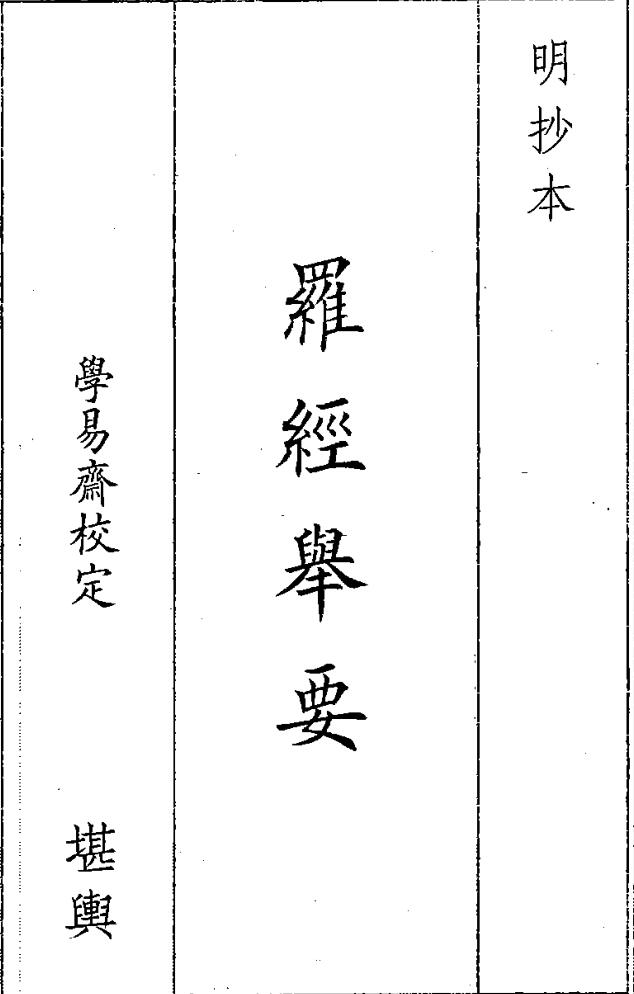 明抄本
羅經舉要
學易齋校定
堪輿